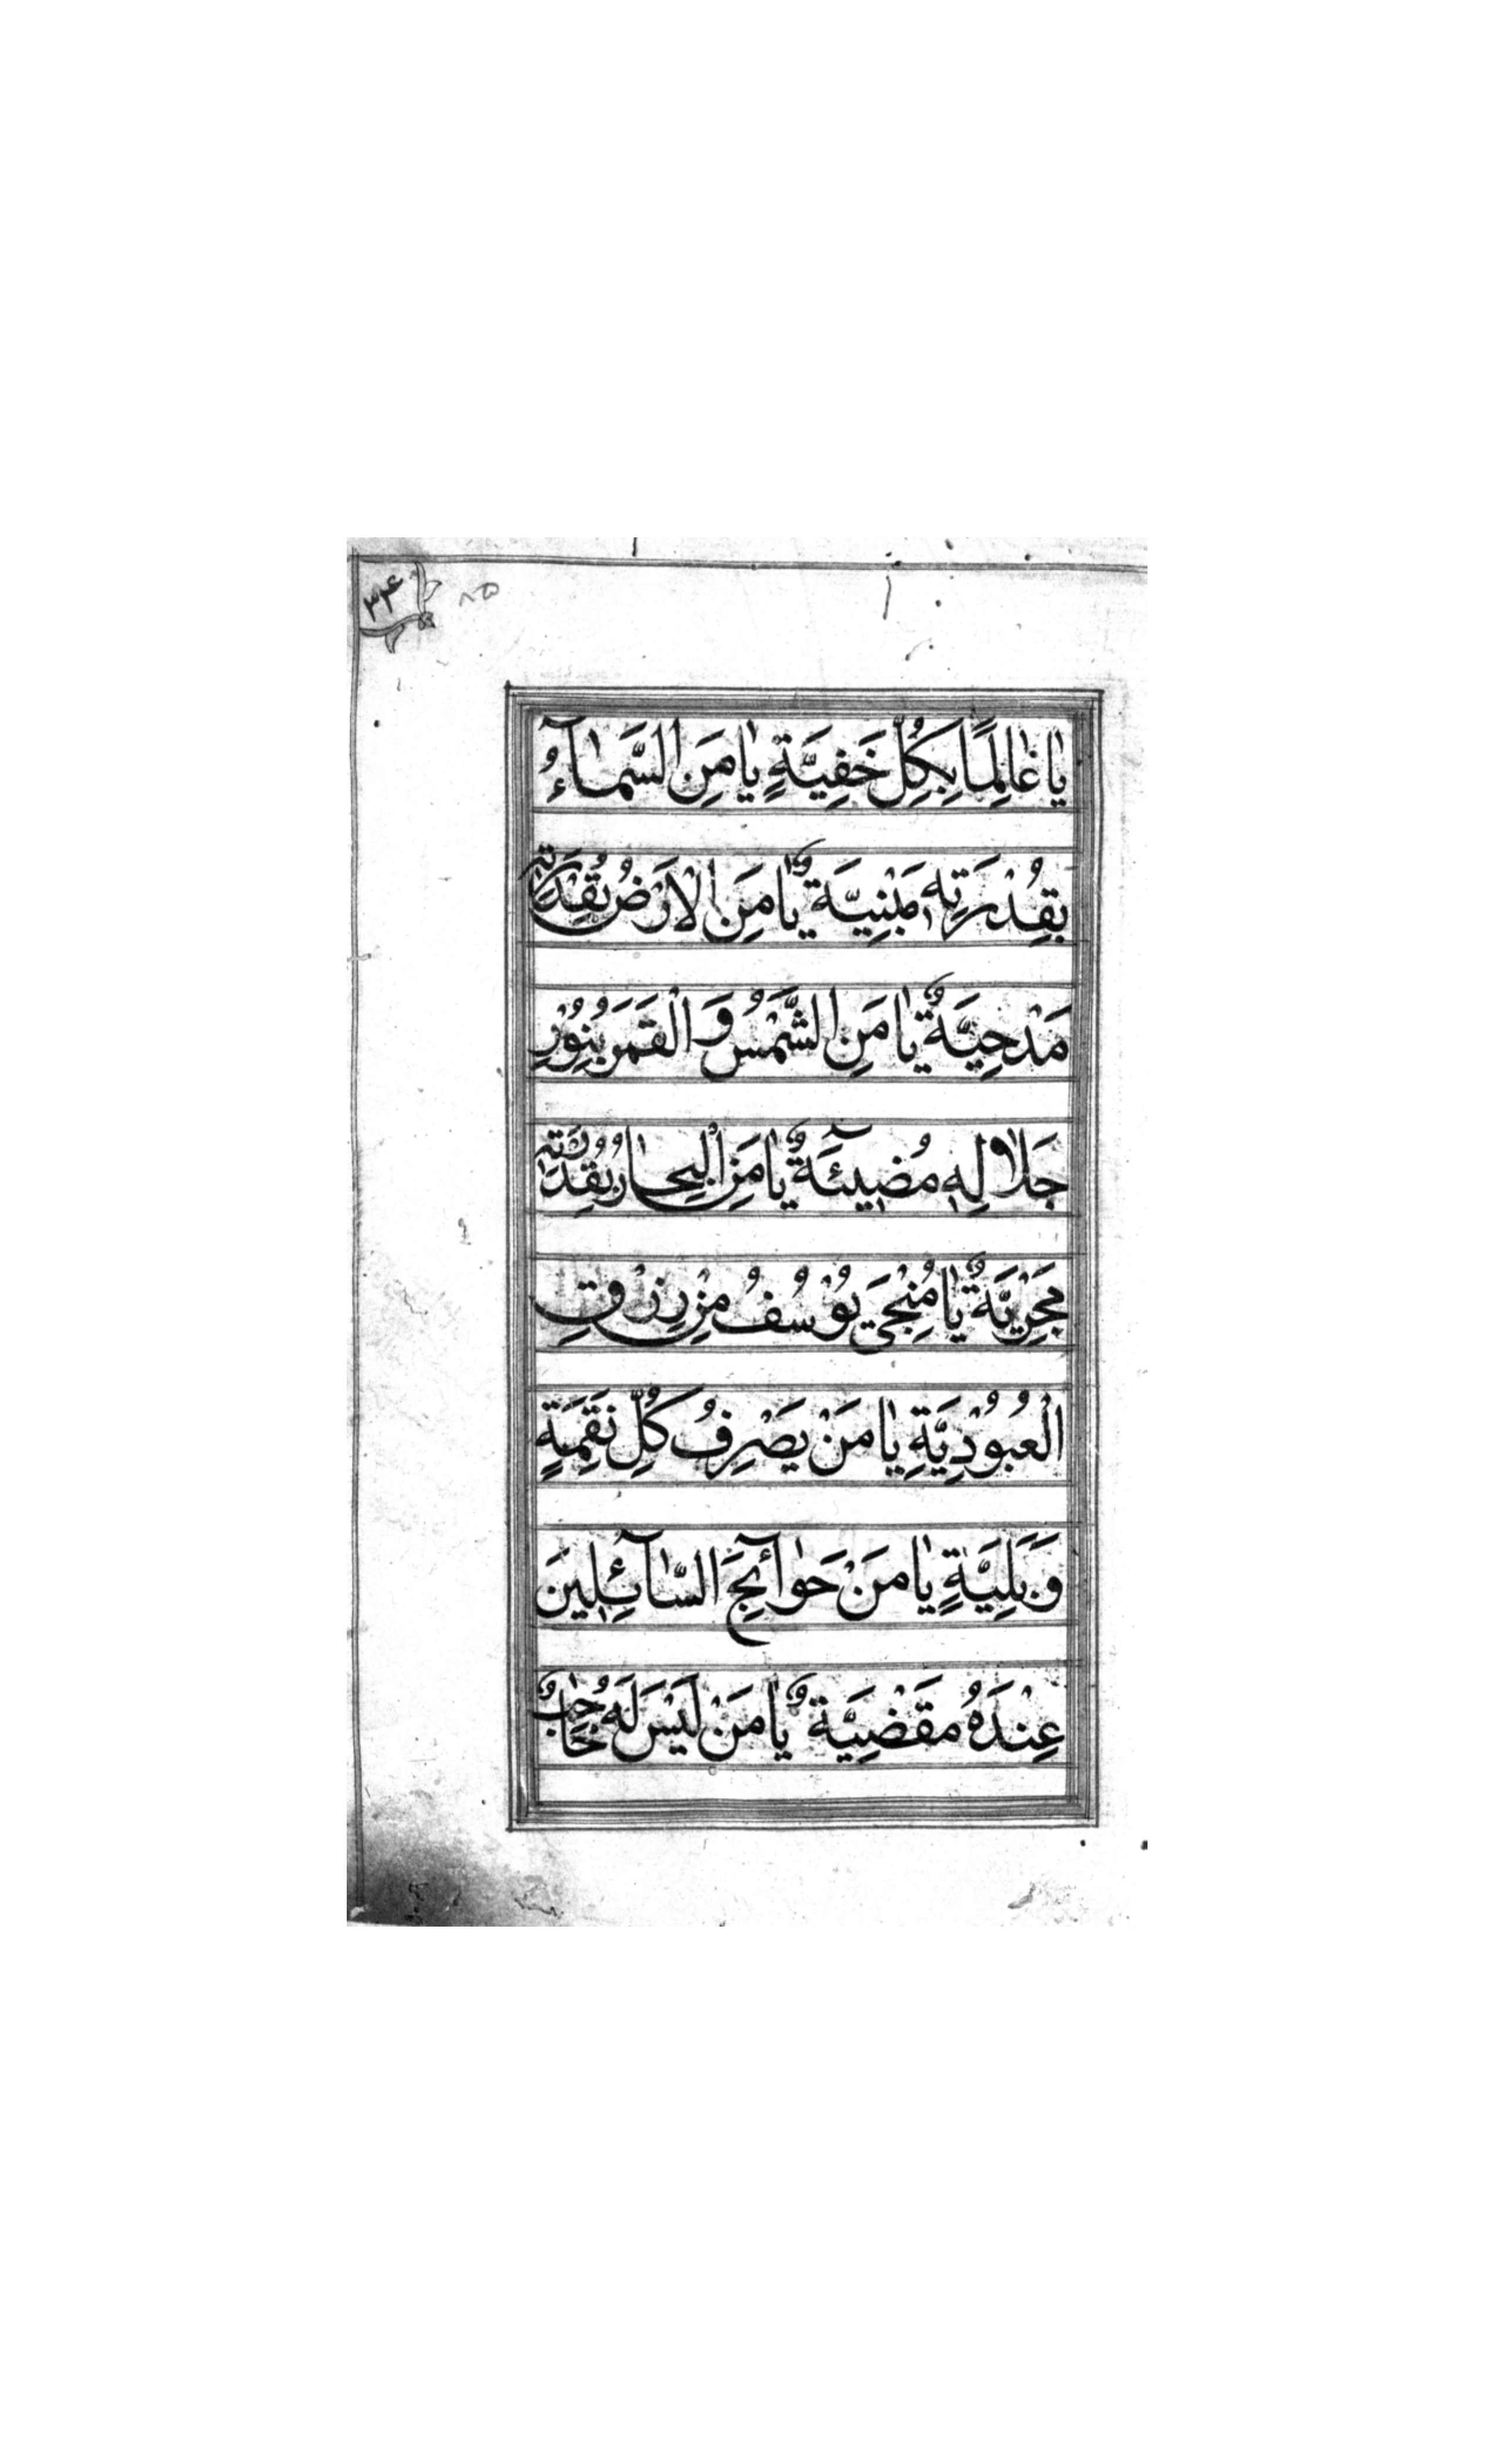 ۳۴
۸۵
يٰا عٰالِمًا بِكُلِّ خَفِيَّةٍ يٰا مَنِ السَّمٰآءُ
بِقُدْرَتِهِ مَبْنِيَّةٌ يٰا مَنِ الْاَرْضُ بِقُدْرَتِهِ
مَدْحِيَّةٌ يٰا مَنِ الشَّمْسُ وَ الْقَمَرُ بِنُوْرِ
جَلٰالِهِ مُضٖيٓئَةٌ يٰا مَنِ الْبِحٰارُ بِقُدْرَتِهِ
مَجْرِيَّةٌ يٰا مُنْجِيَ يُوْسُفُ مِنْ رِزْقِ
الْعُبُوْدِيَّةِ يٰا مَنْ يَصْرِفُ كُلِّ نَقِمَةٍ
وَ بَلِيَّةٍ يٰا مَنْ حَوٰآئِجَ السّٰآئِلٖينَ
عِنْدَهُ مَقْضِيَّةٌ يٰا مَنْ لَيْسَ لَهُ حٰاجِبٌ